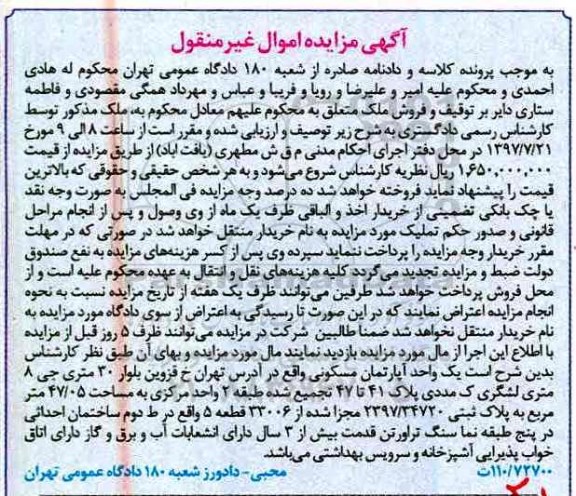 آگهی مزایده اموال غیر منقول
به موجب پرونده کلاسه و دادنامه صادره از شعبه ۱۸۰ دادگاه عمومی تهران محکوم له هادی
احمدی و محکوم علیه امیر و علیرضا و رویا و فریبا و عباس و مهرداد همگی مقصودی و فاطمه
ستاری دایر بر توقیف و فروش ملک متعلق به محکوم علیهم معادل محکوم به، ملک مذکور توسط
کارشناس رسمی دادگستری به شرح زیر توصیف و ارزیابی شده و مقرر است از ساعت ۸ الی ۹ مورخ
۱۳۹۷/۷/۲۱ در محل دفتر اجرای احکام مدنی م ق ش مطهری (یافت اباد) از طریق مزایده از قیمت
۱,۶۵۰,۰۰۰,۰۰۰ ریال نظریه کارشناس شروع می‌شود و به هر شخص حقیقی و حقوقی که بالاترین
قیمت را پیشنهاد نماید فروخته خواهد شد ده درصد وجه مزایده فی المجلس به صورت وجه نقد
یا چک بانکی تضمینی از خریدار اخذ و الباقی ظرف یک ماه از وی وصول و پس از انجام مراحل
قانونی و صدور حکم تملیک مورد مزایده به نام خریدار منتقل خواهد شد در صورتی که در مهلت
مقرر خریدار وجه مزایده را پرداخت ننماید سپرده وی پس از کسر هزینه‌های مزایده به نفع صندوق
دولت ضبط و مزایده تجدید می‌گردد کلیه هزینه‌های نقل و انتقال به عهده محکوم علیه است و از
محل فروش پرداخت خواهد شد طرفین می‌توانند ظرف یک هفته از تاریخ مزایده نسبت به نحوه
انجام مزایده اعتراض نمایند که در این صورت تا رسیدگی به اعتراض از سوی دادگاه مورد مزایده به
نام خریدار منتقل نخواهد شد ضمنا طالبین شرکت در مزایده می‌توانند ظرف ۵ روز قبل از مزایده
با اطلاع این اجرا از مال مورد مزایده بازدید نمایند مال مورد مزایده و بهای آن طبق نظر کارشناس
بدین شرح است یک واحد آپارتمان مسکونی واقع در آدرس تهران خ قزوین بلوار ۳۰ متری جی ۸
متری لشگری ک مددی پلاک ۴۱ تا ۴۷ تجمیع شده طبقه ۲ واحد مرکزی به مساحت ۴۷/۰۵ متر
مربع به پلاک ثبتی ۲۳۹۷/۳۴۷۲۰ مجزا شده از ۳۳۰۰۶ قطعه ۵ واقع در ط دوم ساختمان احداثی
در پنج طبقه نما سنگ تراورتن قدمت بیش از ۳ سال دارای انشعابات آب و برق و گاز دارای اتاق
خواب پذیرایی آشپزخانه و سرویس بهداشتی می‌باشد.
۱۱۰/۷۲۷۰۰ت محبی- دادورز شعبه ۱۸۰ دادگاه عمومی تهران